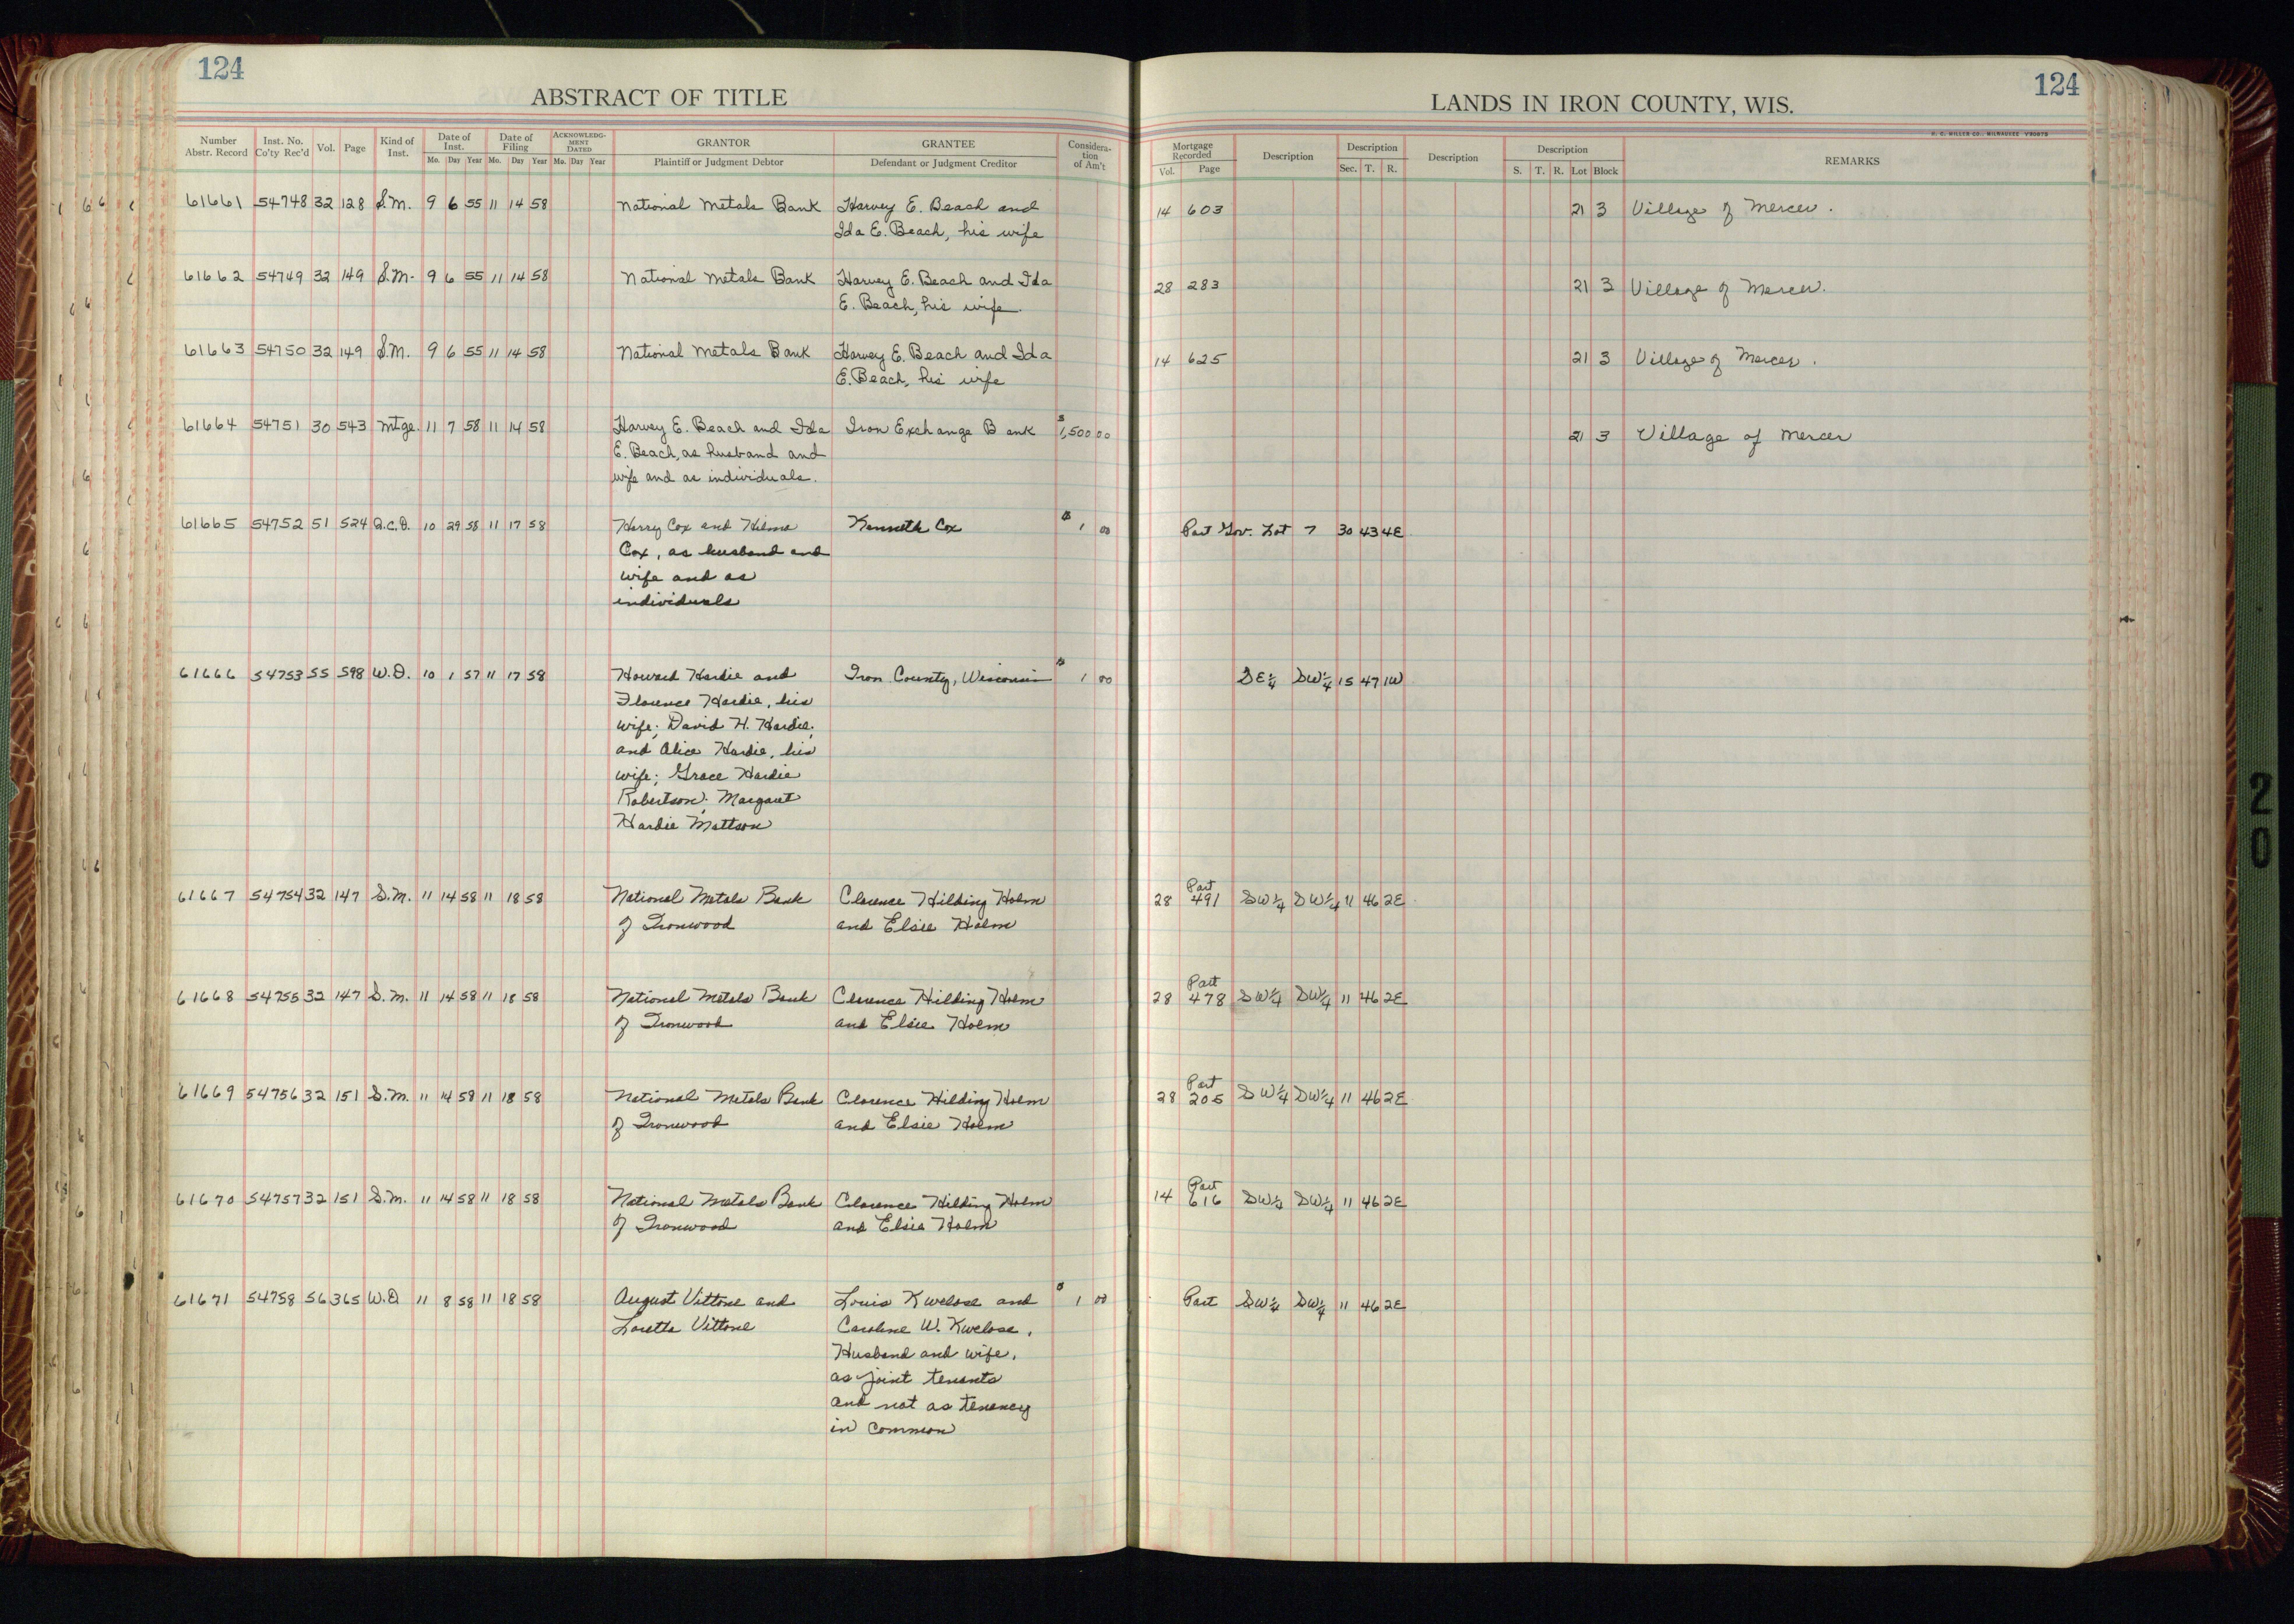 124
ABSTRACT OF TITLE
Number Abstr. Record Inst. No. Co'ty Rec'd Vol. Page Kind of Inst. Date of Inst. Date of Filing ACKNOWLEDG-MENT DATED GRANTOR GRANTEE Considera-tion of Am't
Mo. Day Year Mo. Day Year Mo. Day Year Plaintiff or Judgment Debtor Defendant or Judgment Creditor
61661 54748 32 128 S.M. 9 6 55 11 14 58 National Metals Bank Harvey E. Beach and
Ida E. Beach, his wife
61662 54749 32 149 S.M. 9 6 55 11 14 58 National Metals Bank Harvey E. Beach and Ida
E. Beach, his wife.
61663 54750 32 149 S.M. 9 6 55 11 14 58 National Metals Bank Harvey E. Beach and Ida
E. Beach, his wife
61664 54751 30 543 Mtge. 11 7 58 11 14 58 Harvey E. Beach and Ida Iron Exchange Bank $1,500 00
E. Beach, as husband and
wife and as individuals.
61665 54752 51 524 Q.C.D. 10 29 58 11 17 58 Harry Cox and Hilma Kenneth Cox $1 00
Cox, as husband and
wife and as
individuals
61666 54753 55 598 W.D. 10 1 57 11 17 58 Howard Hardie and Iron County, Wisconsin $1 00
Florence Hardie, his
wife; David H. Hardie,
and Alice Hardie, his
wife; Grace Hardie
Robertson; Margaret
Hardie Mattson
61667 54754 32 147 S.M. 11 14 58 11 18 58 National Metals Bank Clarence Hilding Holm
of Ironwood and Elsie Holm
61668 54755 32 147 S.M. 11 14 58 11 18 58 National Metals Bank Clarence Hilding Holm
of Ironwood and Elsie Holm
61669 54756 32 151 S.M. 11 14 58 11 18 58 National Metals Bank Clarence Hilding Holm
of Ironwood and Elsie Holm
61670 54757 32 151 S.M. 11 14 58 11 18 58 National Metals Bank Clarence Hilding Holm
of Ironwood and Elsie Holm
61671 54758 56 365 W.D 11 8 58 11 18 58 August Vittone and Louis Kwelose and $1 00
Loretta Vittone Caroline W. Kwelose,
Husband and wife,
as joint tenants
and not as tenancy
in common
124
LANDS IN IRON COUNTY, WIS.
H. C. MILLER CO., MILWAUKEE
Mortgage Recorded Description Description Description Description REMARKS
Vol. Page Sec. T. R. S. T. R. Lot Block
14 603 21 3 Village of Mercer.
28 283 21 3 Village of Mercer.
14 625 21 3 Village of Mercer.
21 3 Village of Mercer
Part Gov. Lot 7 30 43 4E
SE¼ SW¼ 15 47 1W
Part
28 491 SW¼ SW¼ 11 46 2E
Part
28 478 SW¼ SW¼ 11 46 2E
Part
28 205 SW¼ SW¼ 11 46 2E
Part
14 616 SW¼ SW¼ 11 46 2E
Part SW¼ SW¼ 11 46 2E
20